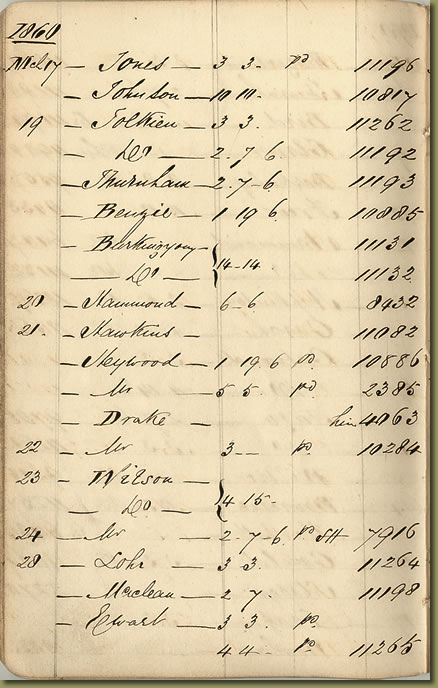 1860
Mch 17 — Jones — 3 3 - pd 11196
— Johnson — 10 10 - 10817
19 — Tolkien — 3 3. 11262
— Do — 2. 7 6. 11192
— Thurnham — 2. 7 - 6. 11193
— Benzie — 1 19 6 10885
— 11131
— Do — 14 - 14 11132
20 — Hammond — 6 - 6 8432
21. — Hawkins — 11082
— Heywood — 1 19 6 pd. 10886
— Mr — 5 5. pd. 2385
— Drake — 4063
22 — Mr — 3 - - pd. 10284
23 — Wilson —
— Do — 4 15 -
24 — Mr — 2 - 7 - 6. pd SH 7916
28 — Lohr — 3 3. 11264
— Maclean — 2 7. 11198
— Ewart — 3 3 pd.
4 4 - pd. 11265